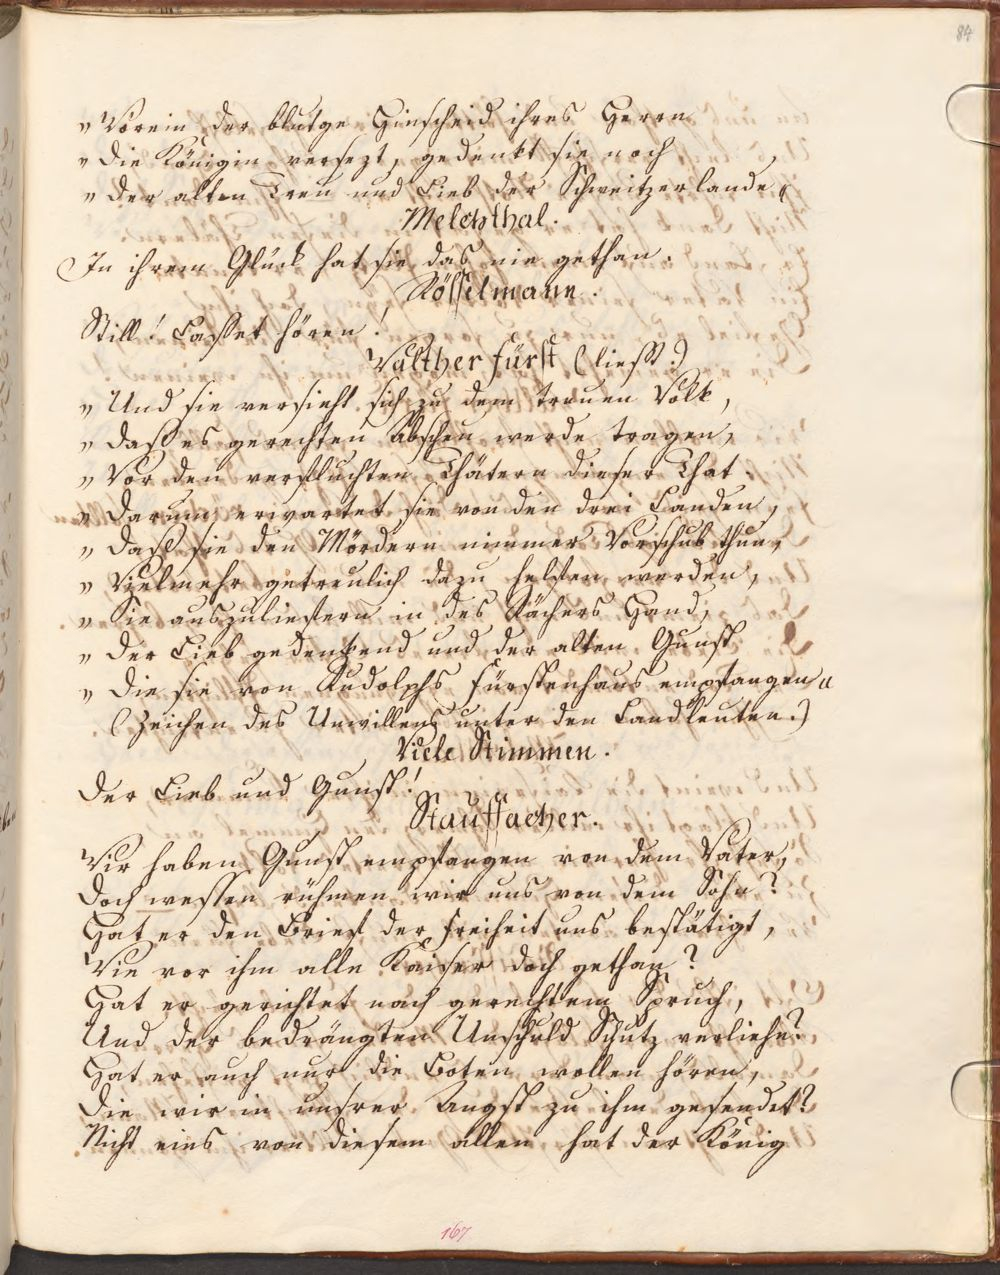 84
„ Worein der blutge Hinscheid ihres Herrn
„ Die Königin versezt, gedenkt sie noch
„ Der alten Treu und Lieb der Schweitzerlande „
Melchthal.
In ihrem Glück hat sie das nie gethan.
Rösselmann.
Still! Lasset hören!
Walther Fürst (liest.)
„ Und sie versieht sich zu dem treuen Volk,
„ Daß es gerechten Abscheu werde tragen,
„ Vor den verfluchten Thätern dieser That.
„ Darum erwartet sie von den drei Landen,
„ Daß sie den Mördern nimmer Vorschub thun,
„ Vielmehr getreulich dazu helfen werden,
„ Sie auszuliefern in des Rächers Hand,
„ Der Lieb gedenkend und der alten Gunst
„ Die sie von Rudolphs Fürstenhaus empfangen „
(Zeichen des Unwillens unter den Landleuten.)
Viele Stimmen.
Der Lieb und Gunst!
Stauffacher.
Wir haben Gunst empfangen von dem Vater,
Doch wessen rühmen wir uns von dem Sohn?
Hat er den Brief der Freiheit uns bestätigt,
Wie vor ihm alle Kaiser doch gethan?
Hat er gerichtet nach gerechtem Spruch,
Und der bedrängten Unschuld Schutz verliehn?
Hat er auch nur die Boten wollen hören,
Die wir in unsrer Angst zu ihm gesendet?
Nicht eins von diesem allen hat der König
167